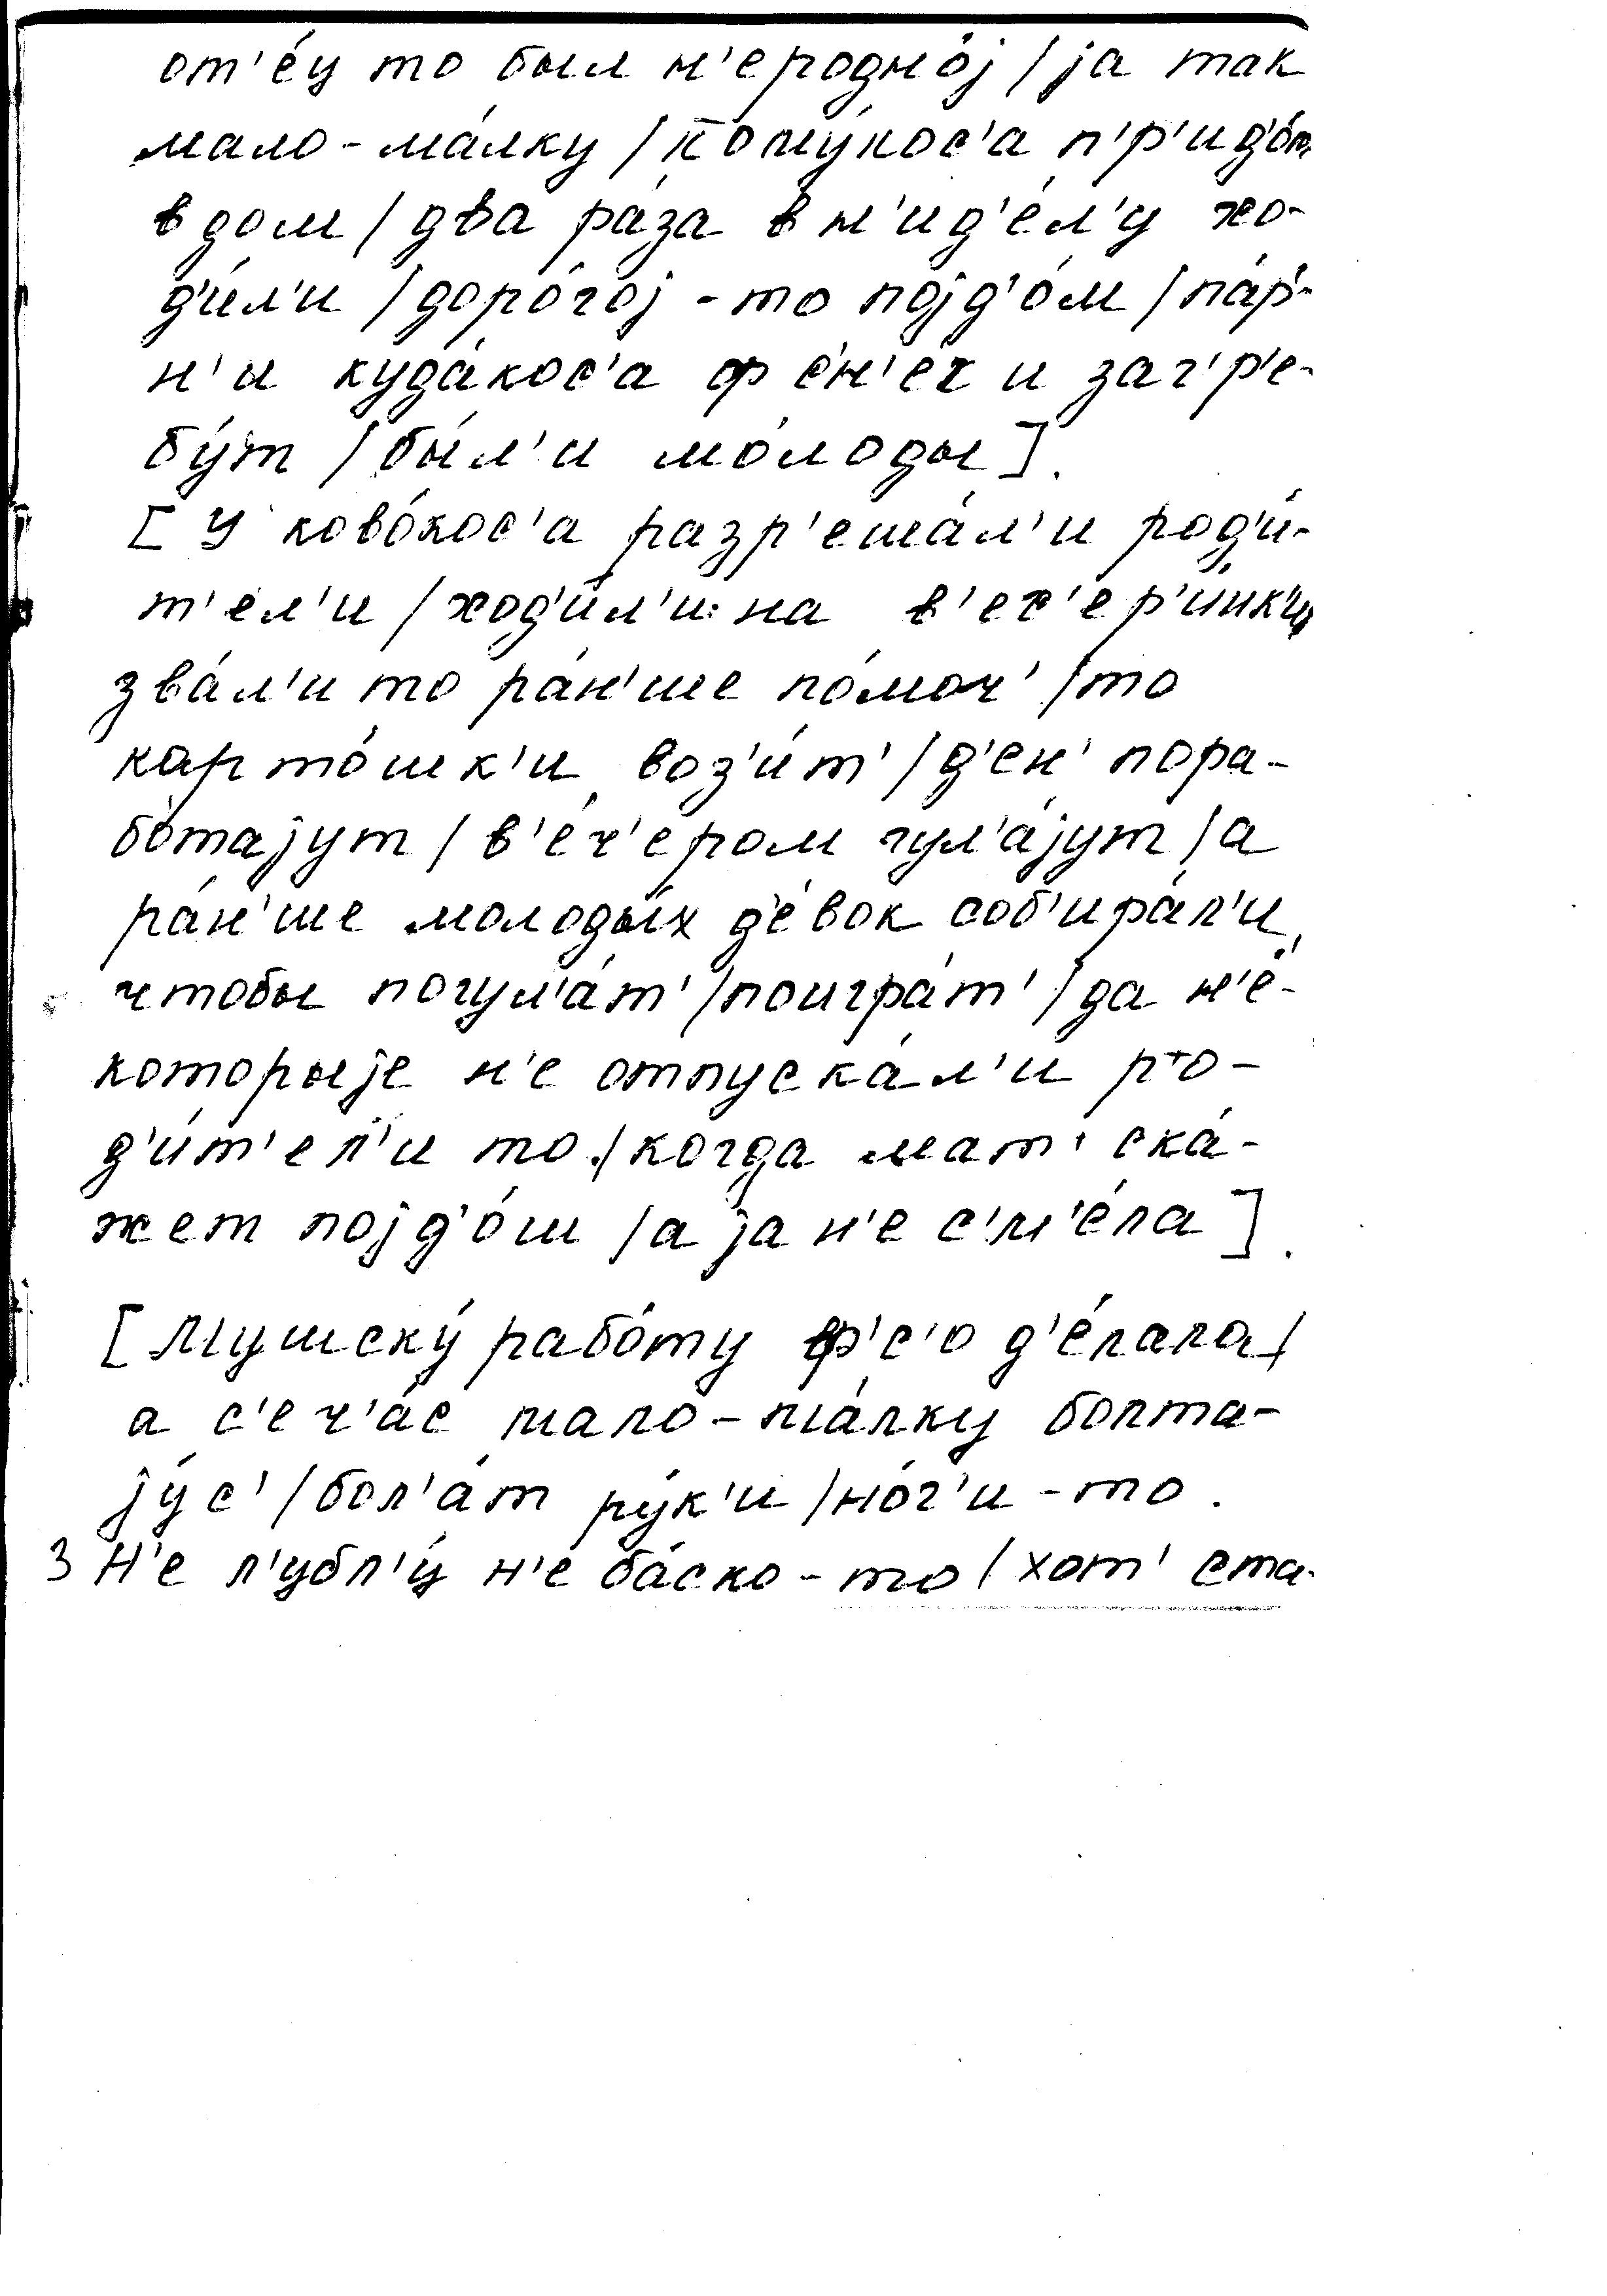 от'е́ц то был н'ероднój / jа так
мало-ма́лку / кому́кос'а п'р'ид'о́т
в дом / два ра́за в н'ид'е́л'у хо-
д'и́л'и / доро́гоj - то поjд'о́м / па́р'-
н'и куда́кос'а ф с'н'ег и заг'р'е-
бу́т / бы́л'и мо́лоды].
[У ково́кос'а разр'еша́л'и род'и́-
т'ел'и / ход'и́л'и на в'еч'ер'и́нк'и
зва́л'и то ра́н'ше по́моч' / то
карто́шк'и воз'и́т' / д'ен' пора-
бо́таjут / в'е́ч'ером гул'а́jут / а
ра́н'ше молоды́х д'е́вок соб'ира́л'и,
чтобы погул'а́т' / поигра́т' / да н'е́-
которыjе н'е отпуска́л'и ро-
д'и́т'ел'и то / когда мат' ска́-
жет поjд'о́ш / а jа н'е с'м'е́ла].
[Мушску́ рабо́ту ф'с'о д'е́лала /
а с'еч'а́с мало-ма́лку болта-
jу́с' / бол'а́т ру́к'и / но́г'и - то.
З Н'е л'убл'у́ н'е ба́ско - то / хот' ста-